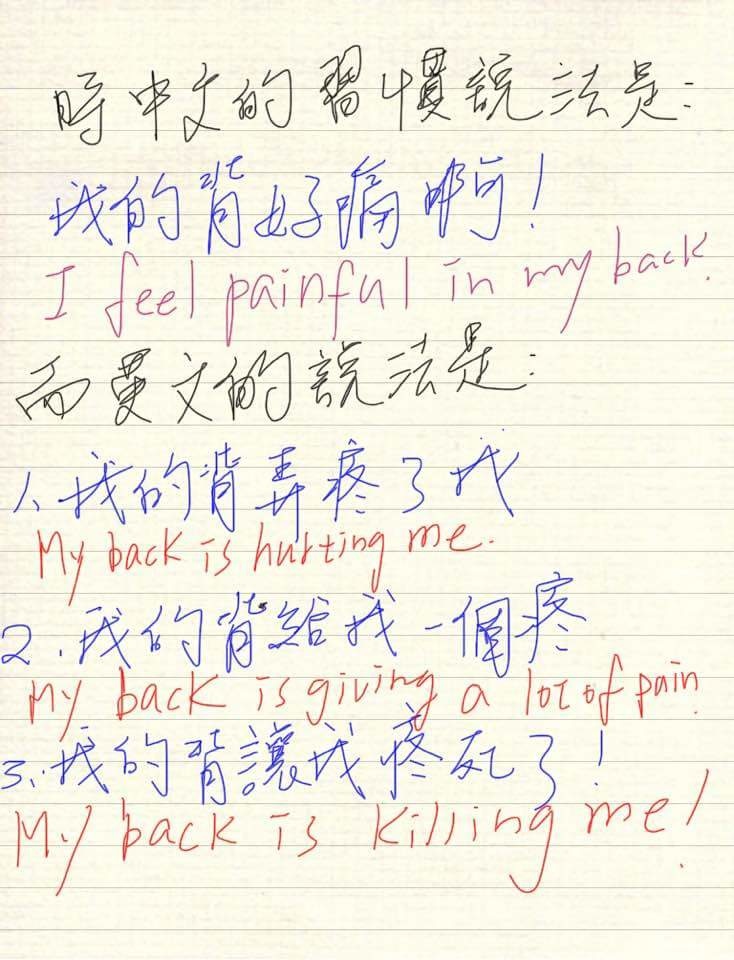 時中文的習慣說法是:
我的背好痛啊!
I feel painful in my back.
而英文的說法是:
1、我的背弄疼了我
My back is hurting me.
2.我的背給我一個疼
My back is giving a lot of pain.
3、我的背讓我疼死了!
My back is killing me!